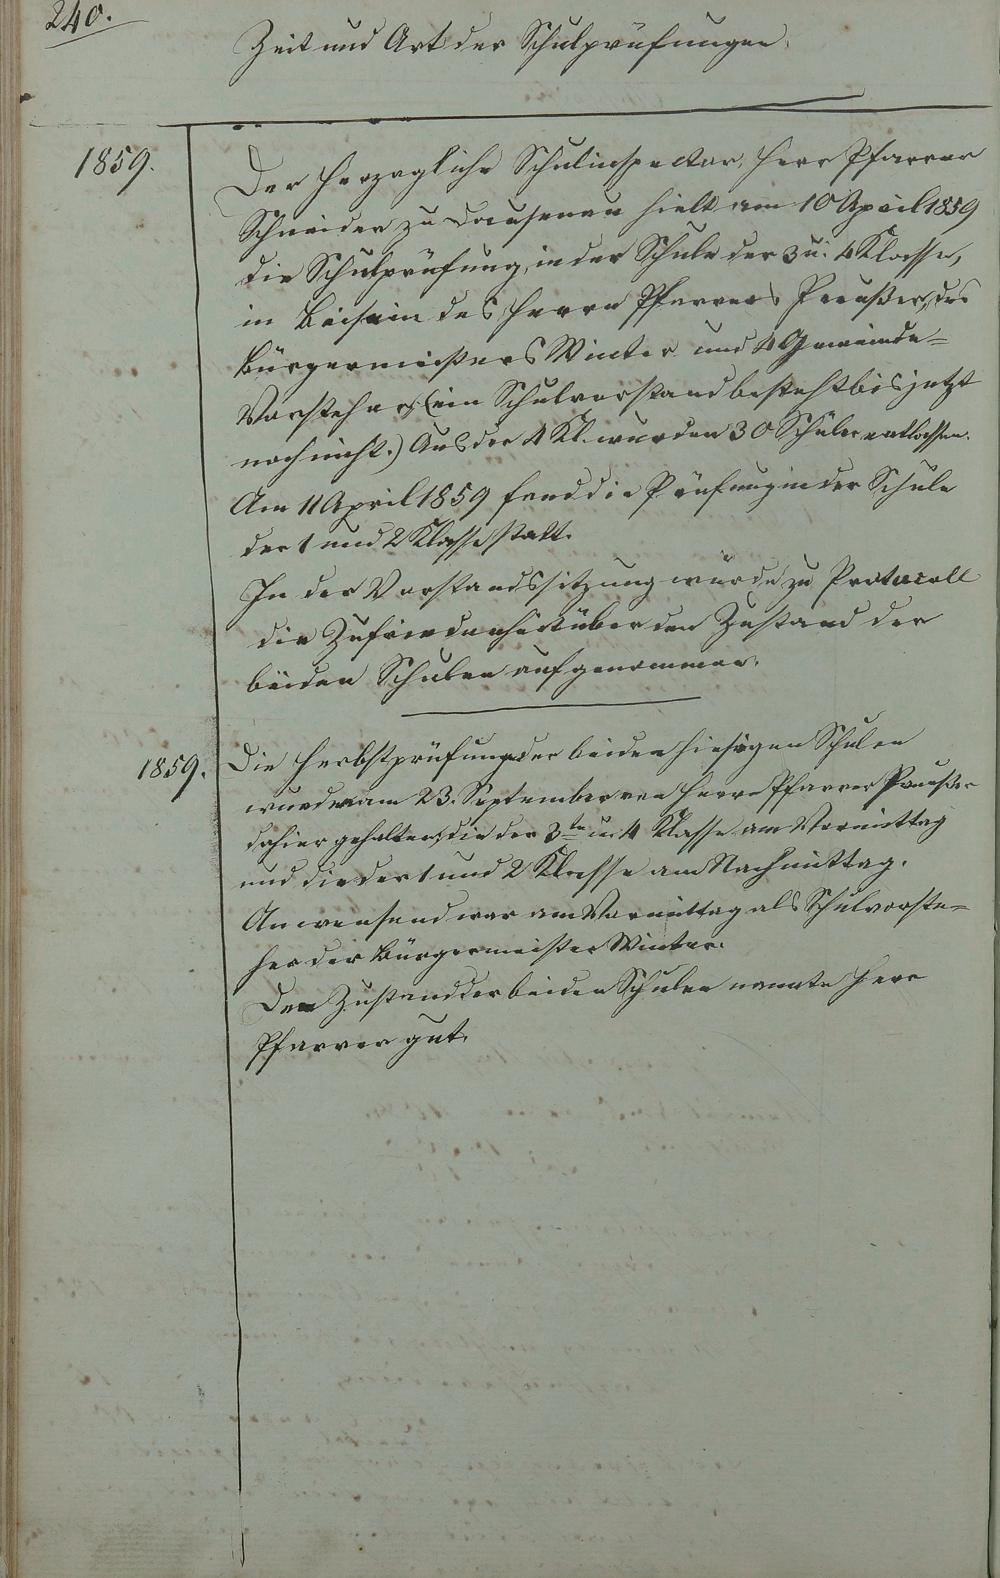 240.
Zeit und Art der Schulprüfungen.
1859.
Der Herzogliche Schulinspector, Herr Pfarrer
Schneider zu Dausenau hielt am 10 April 1859
die Schulprüfung, in der Schule der 3 u. 4 Klasse,
in Beisein des Herrn Pfarrers Preußer, des
Bürgermeisters Winter und 4 Gemeinde=
Vorsteher, (ein Schulvorstand besteht bis jetzt
noch nicht.) Aus der 4 Kl. wurden 30 Schüler entlassen.
Am 11 April 1859 fand die Prüfung in der Schule
der 1 und 2 Klasse statt.
In der Vorstandssitzung wurde zu Protocoll
die Zufriedenheit über den Zustand der
beiden Schulen aufgenommen.
1859.
Die Herbstprüfung der beiden hiesigen Schulen
wurde am 23. September von Herrn Pfarrer Preußer
dahier gehalten, die der 3te u. 4 Klasse am Vormittag
und die der 1 und 2 Klasse am Nachmittag.
Anwesend war am Vormittag als Schulvorste=
her der Bürgermeister Winter.
Den Zustand der beiden Schulen nannte Herr
Pfarrer gut.